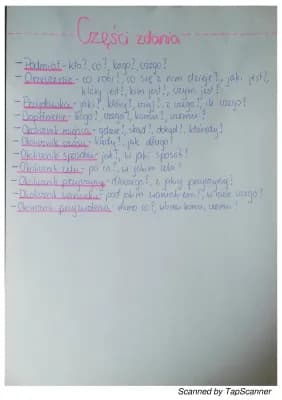 Części zdania
- Podmiot - kto?, co?, kogo?, czego?
- Orzeczenie - co robi?, co się z nim dzieje?, jaki jest?,
kim jest?, czym jest?
- Przydawka - jaki?, który?, czyj?, z czego?, ile czego?
- Dopełnienie - kogo? czego?, komu?, czemu?
- Okolicznik miejsca - gdzie?, skąd?, dokąd?, którędy?
- Okolicznik czasu - kiedy?, jak długo?
- Okolicznik sposobu - jak?, w jaki sposób?
- Okolicznik celu - po co?, w jakim celu?
- Okolicznik przyczyny - dlaczego?, z jakiej przyczyny?
- Okolicznik warunku - pod jakim warunkiem?, w razie czego?
- Okolicznik przyzwolenia - mimo co?, wbrew komu, czemu?
Scanned by TapScanner